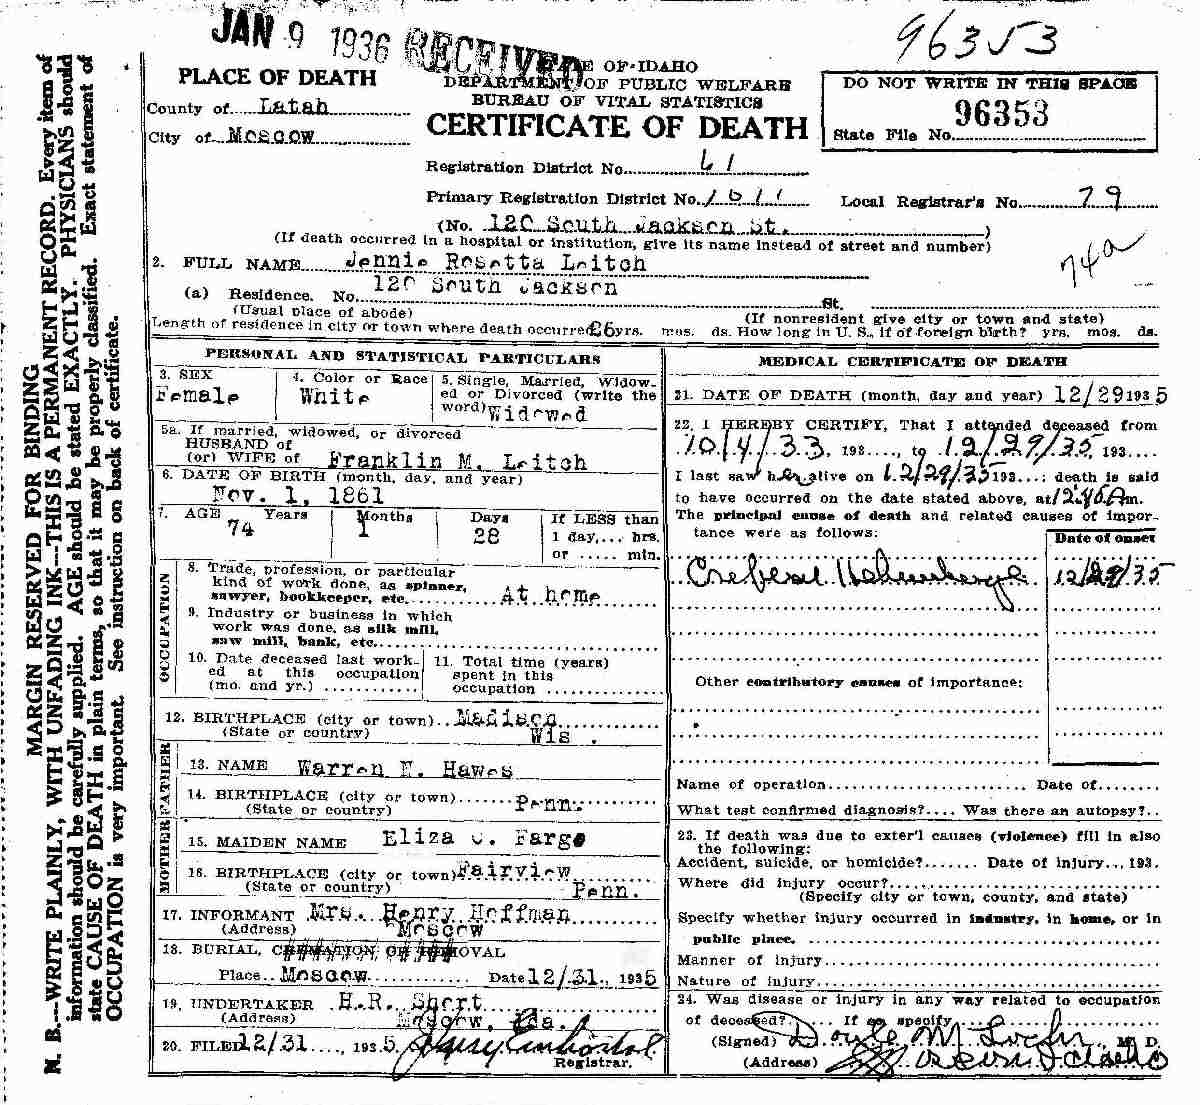 JAN 9 1936 RECEIVED
96353
MARGIN RESERVED FOR BINDING
N. B.—WRITE PLAINLY, WITH UNFADING INK—THIS IS A PERMANENT RECORD. Every item of
information should be carefully supplied. AGE should be stated EXACTLY. PHYSICIANS should
state CAUSE OF DEATH in plain terms, so that it may be properly classified. Exact statement of
OCCUPATION is very important. See instruction on back of certificate.
E OF IDAHO
DEPARTMENT OF PUBLIC WELFARE
BUREAU OF VITAL STATISTICS
CERTIFICATE OF DEATH
PLACE OF DEATH
County of Latah
City of Moscow
DO NOT WRITE IN THIS SPACE
96353
State File No.
Registration District No. 61
Primary Registration District No. 1011 Local Registrar's No. 79
(No. 120 South Jackson St. )
(If death occurred in a hospital or institution, give its name instead of street and number)
74a
2. FULL NAME Jennie Rosetta Leitch
(a) Residence. No. 120 South Jackson St.
(Usual place of abode) (If nonresident give city or town and state)
Length of residence in city or town where death occurred 26 yrs. mos. ds. How long in U. S., if of foreign birth? yrs. mos. ds.
PERSONAL AND STATISTICAL PARTICULARS
3. SEX Female
4. Color or Race White
5. Single, Married, Widow-
ed or Divorced (write the
word) Widowed
5a. If married, widowed, or divorced
HUSBAND of
(or) WIFE of Franklin M. Leitch
6. DATE OF BIRTH (month, day, and year)
Nov. 1, 1861
7. AGE Years 74 Months 1 Days 28 If LESS than
1 day,.... hrs.
or ..... min.
OCCUPATION
8. Trade, profession, or particular
kind of work done, as spinner,
sawyer, bookkeeper, etc. At home
9. Industry or business in which
work was done, as silk mill,
saw mill, bank, etc.
10. Date deceased last work-
ed at this occupation
(mo. and yr.)
11. Total time (years)
spent in this
occupation
12. BIRTHPLACE (city or town) Madison
(State or country) Wis.
FATHER
13. NAME Warren F. Hawes
14. BIRTHPLACE (city or town) Penn.
(State or country)
MOTHER
15. MAIDEN NAME Eliza J. Fargo
16. BIRTHPLACE (city or town) Fairview
(State or country) Penn.
17. INFORMANT Mrs. Henry Hoffman
(Address) Moscow
18. BURIAL, CREMATION OR REMOVAL
Place Moscow Date 12/31, 1935
19. UNDERTAKER H.R. Short
(Address) Moscow, Ida.
20. FILED 12/31, 1935
Registrar.
MEDICAL CERTIFICATE OF DEATH
21. DATE OF DEATH (month, day and year) 12/29 1935
22. I HEREBY CERTIFY, That I attended deceased from
10/4/33, 193...., to 12/29/35, 193....
I last saw her alive on 12/29/35 193...; death is said
to have occurred on the date stated above, at 12:40 A m.
The principal cause of death and related causes of impor-
tance were as follows: Date of onset
12/29/35
Other contributory causes of importance:
Name of operation Date of
What test confirmed diagnosis?.... Was there an autopsy?..
23. If death was due to exter'l causes (violence) fill in also
the following:
Accident, suicide, or homicide?....... Date of injury..., 193.
Where did injury occur?
(Specify city or town, county, and state)
Specify whether injury occurred in industry, in home, or in
public place.
Manner of injury
Nature of injury
24. Was disease or injury in any way related to occupation
of deceased?....... If so, specify
(Signed) Doyle M. M. D.
(Address) Moscow Idaho